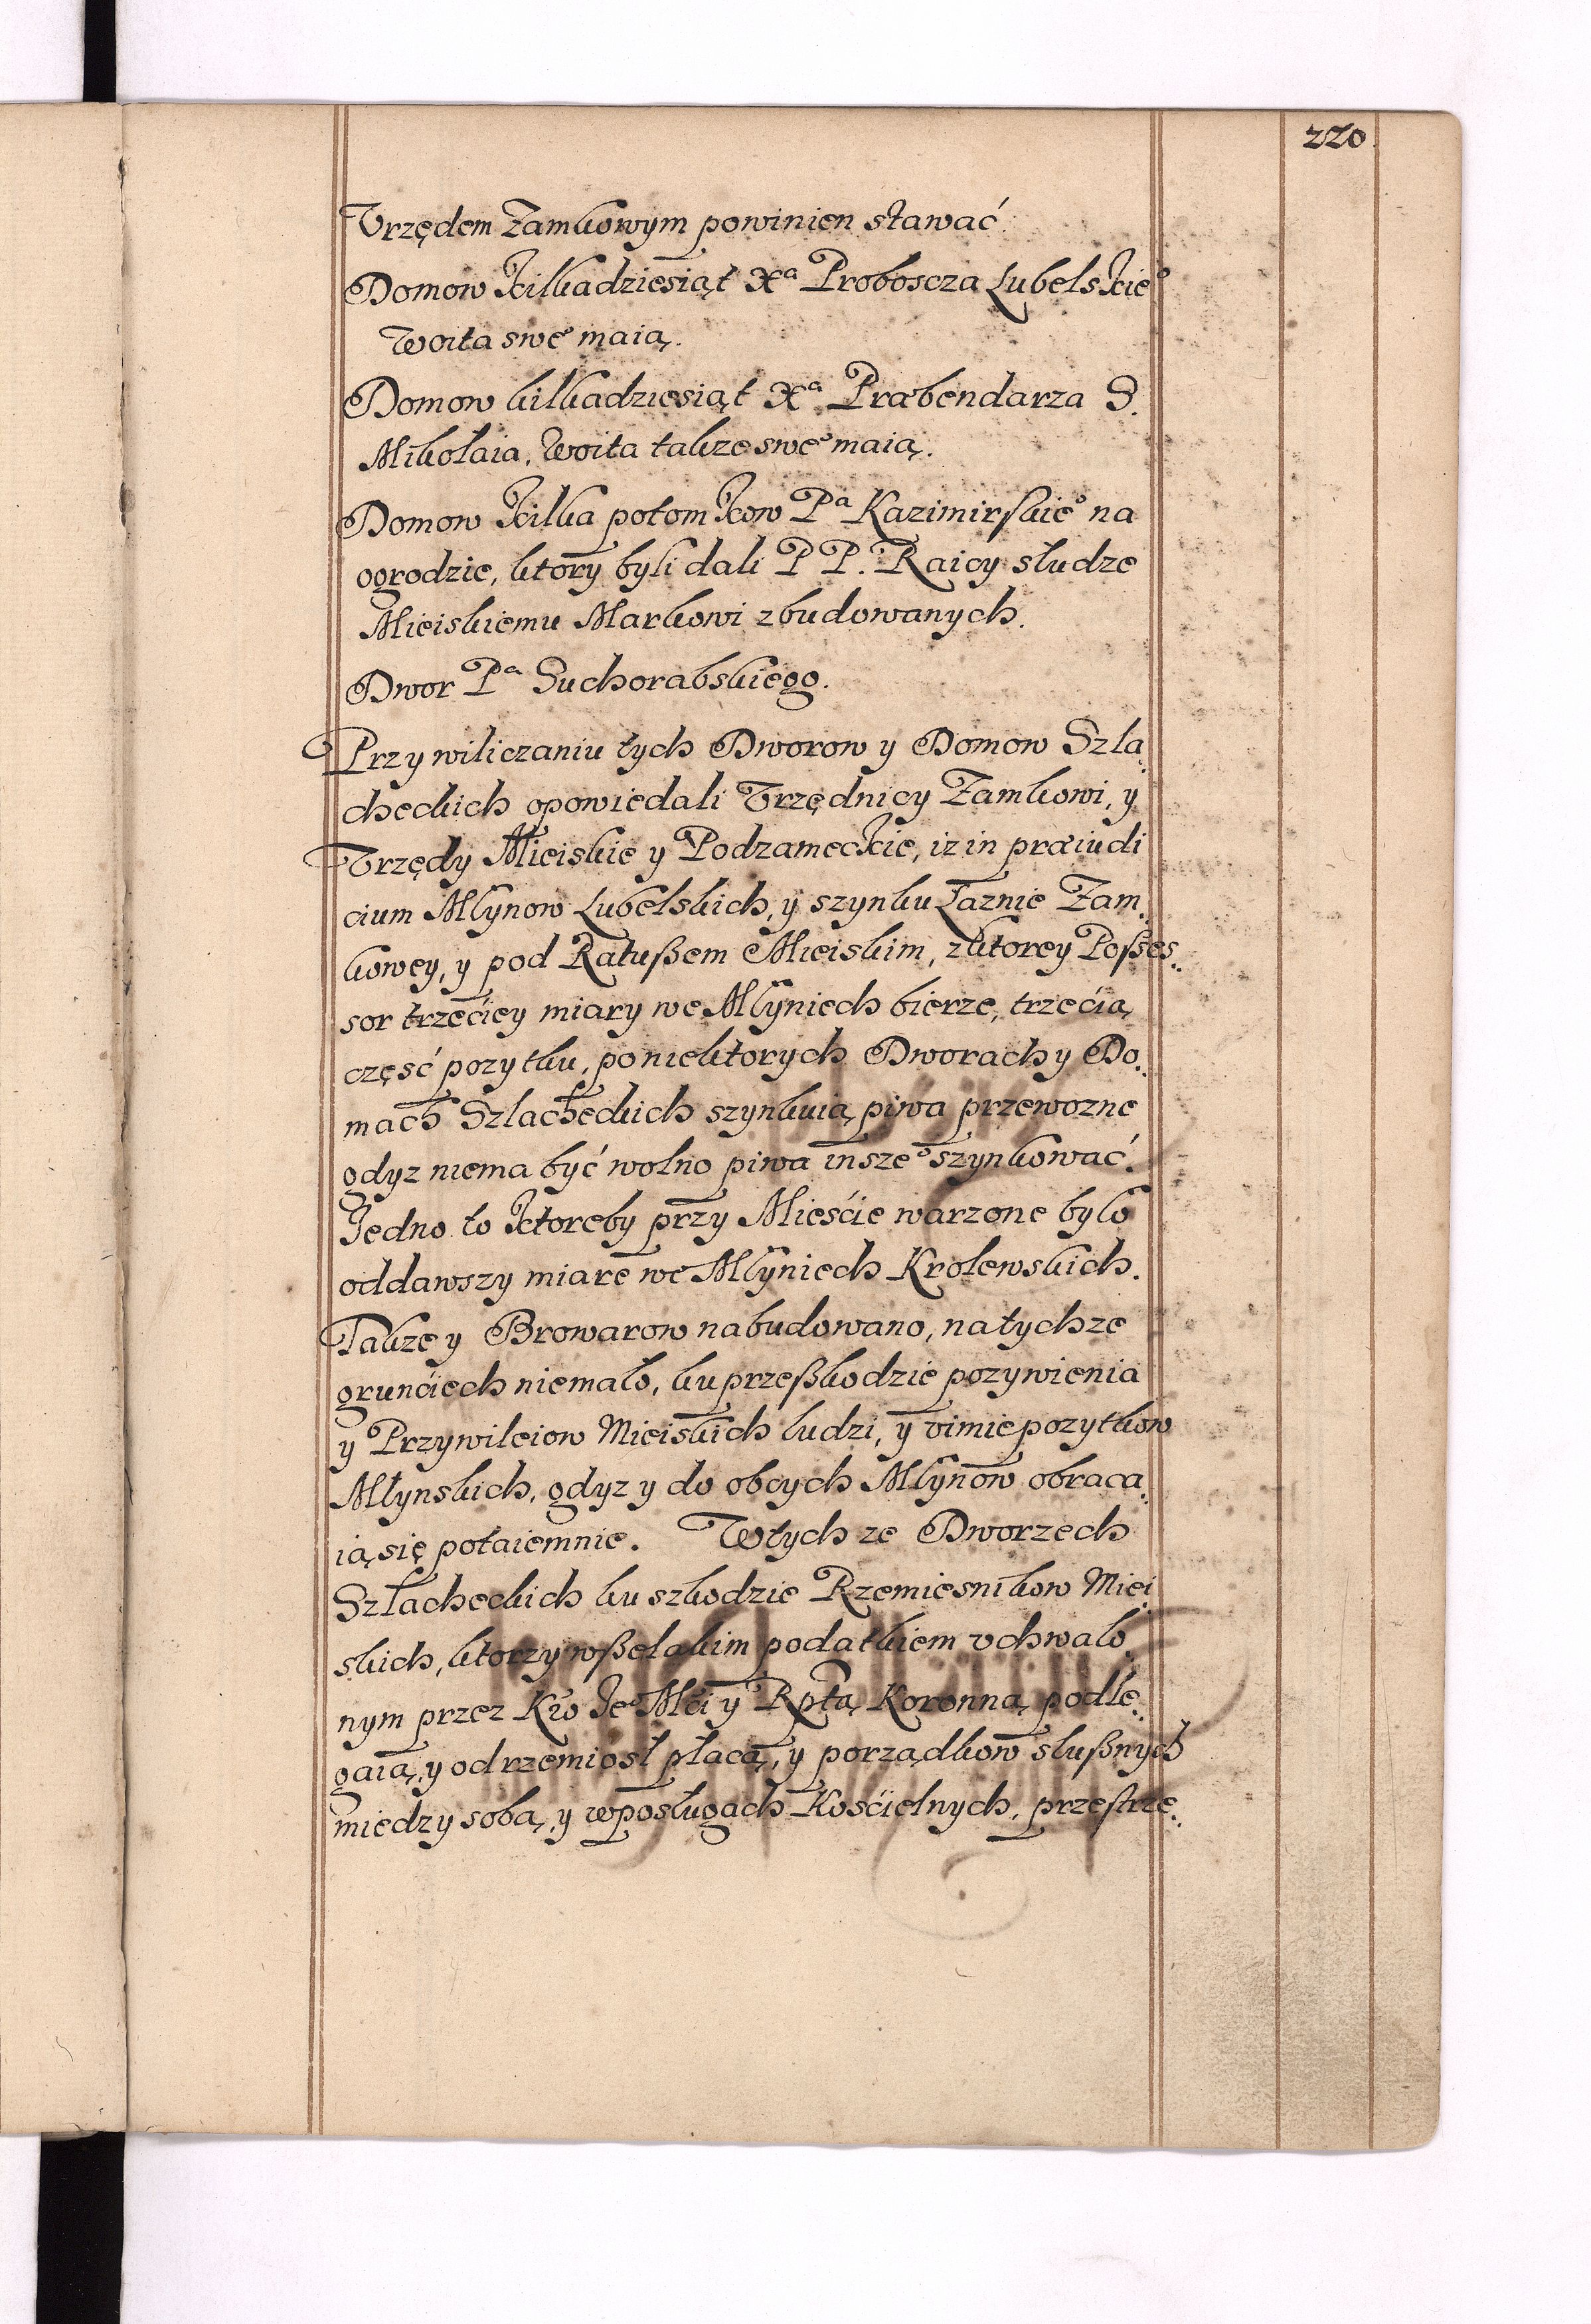 220.
Vrzędem Zamkowym powinien stawać.
Domow kilkadziesiąt Xᵃ Proboscza Lubelskieᵒ
Woita sweᵒ maią.
Domow kilkadziesiąt Xᵃ Præbendarza S.
Mikołaia, Woita takze sweᵒ maią.
Domow kilka potomkow Pᵃ Kazimirskieᵒ na
ogrodzie, ktory byli dali P P. Raicy słudze
Mieiskiemu Markowi zbudowanych.
Dwor Pᵃ Suchorabskiego.
Przy wiliczaniu tych Dworow y Domow Szla„
checkich opowiedali Vrzędnicy Zamkowi, y
Vrzędy Mieiskie y Podzameckie, iz in præiudi
cium Mlynow Lubelskich, y szynku Łaznie Zam„
kowey, y pod Ratußem Mieiskim, z ktorey Poßes„
sor trzeciey miary we Mlyniech bierze, trzecią
część pozytku, po niektorych Dworach y Do„
mach Szlacheckich szynkuią piwa przewozne
gdyz niema być wolno piwa inszeᵒ szynkować.
Jedno to ktoreby przy Mieście warzone było
oddawszy miare we Mlyniech Krolewskich.
Takze y Browarow nabudowano, na tychze
grunciech niemało, ku przeßkodzie pozywienia
y Przywileiow Mieiskich ludzi, y vimie pozytkow
Młynskich, gdyz y do obcych Mlynow obraca„
ią się potaiemnie. W tych ze Dworzech
Szlacheckich ku szkodzie Rzemiesnikow Miei„
skich, ktorzy wßelakim podatkiem vchwalo„
nym przez Kro Jeᵒ Mći y Rptą Koronną podle„
gaią, y od rzemiosł płacą, y porządkow słußnych
miedzy sobą, y w posługach Kościelnych, przestrze„